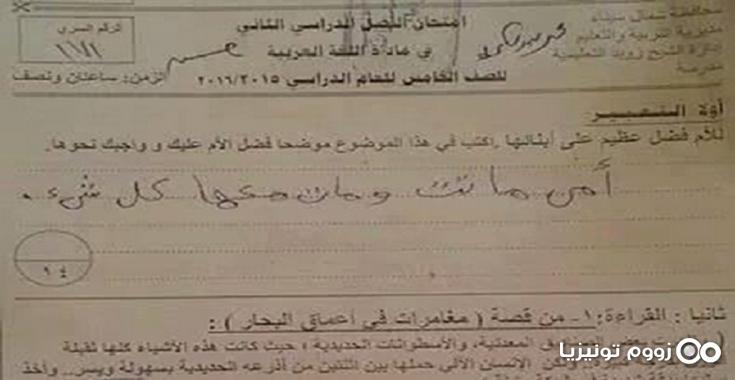 محافظة شمال سيناء
مديرية التربية والتعليم
إدارة الشيخ زويد التعليمية
مدرسة
امتحان الفصل الدراسي الثاني
في مادة اللغة العربية
للصف الخامس للعام الدراسي ٢٠١٦/٢٠١٥
الرقم السري
الزمن: ساعتان ونصف
أولا التعبير
للأم فضل عظيم على أبنائها .اكتب في هذا الموضوع موضحا فضل الأم عليك و واجبك نحوها.
أمى ماتت ومات معها كل شىء.
١٤
ثانيا : القراءة: ١- من قصة ( مغامرات في أعماق البحار ) :
المعدنية، والأسطوانات الحديدية ؛ حيث كانت هذه الأشياء كلها ثقيلة
الإنسان الآلي حملها بين اثنتين من أذرعه الحديدية بسهولة ويسر.. وأخذ
زووم تونيزيا